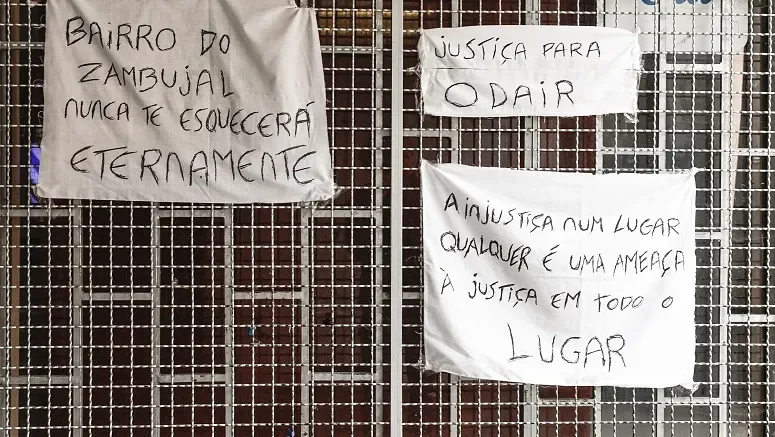 BAIRRO DO
ZAMBUJAL
NUNCA TE ESQUECERÁ
ETERNAMENTE
JUSTIÇA PARA
ODAIR
A INJUSTIÇA NUM LUGAR
QUALQUER É UMA AMEAÇA
À JUSTIÇA EM TODO O
LUGAR